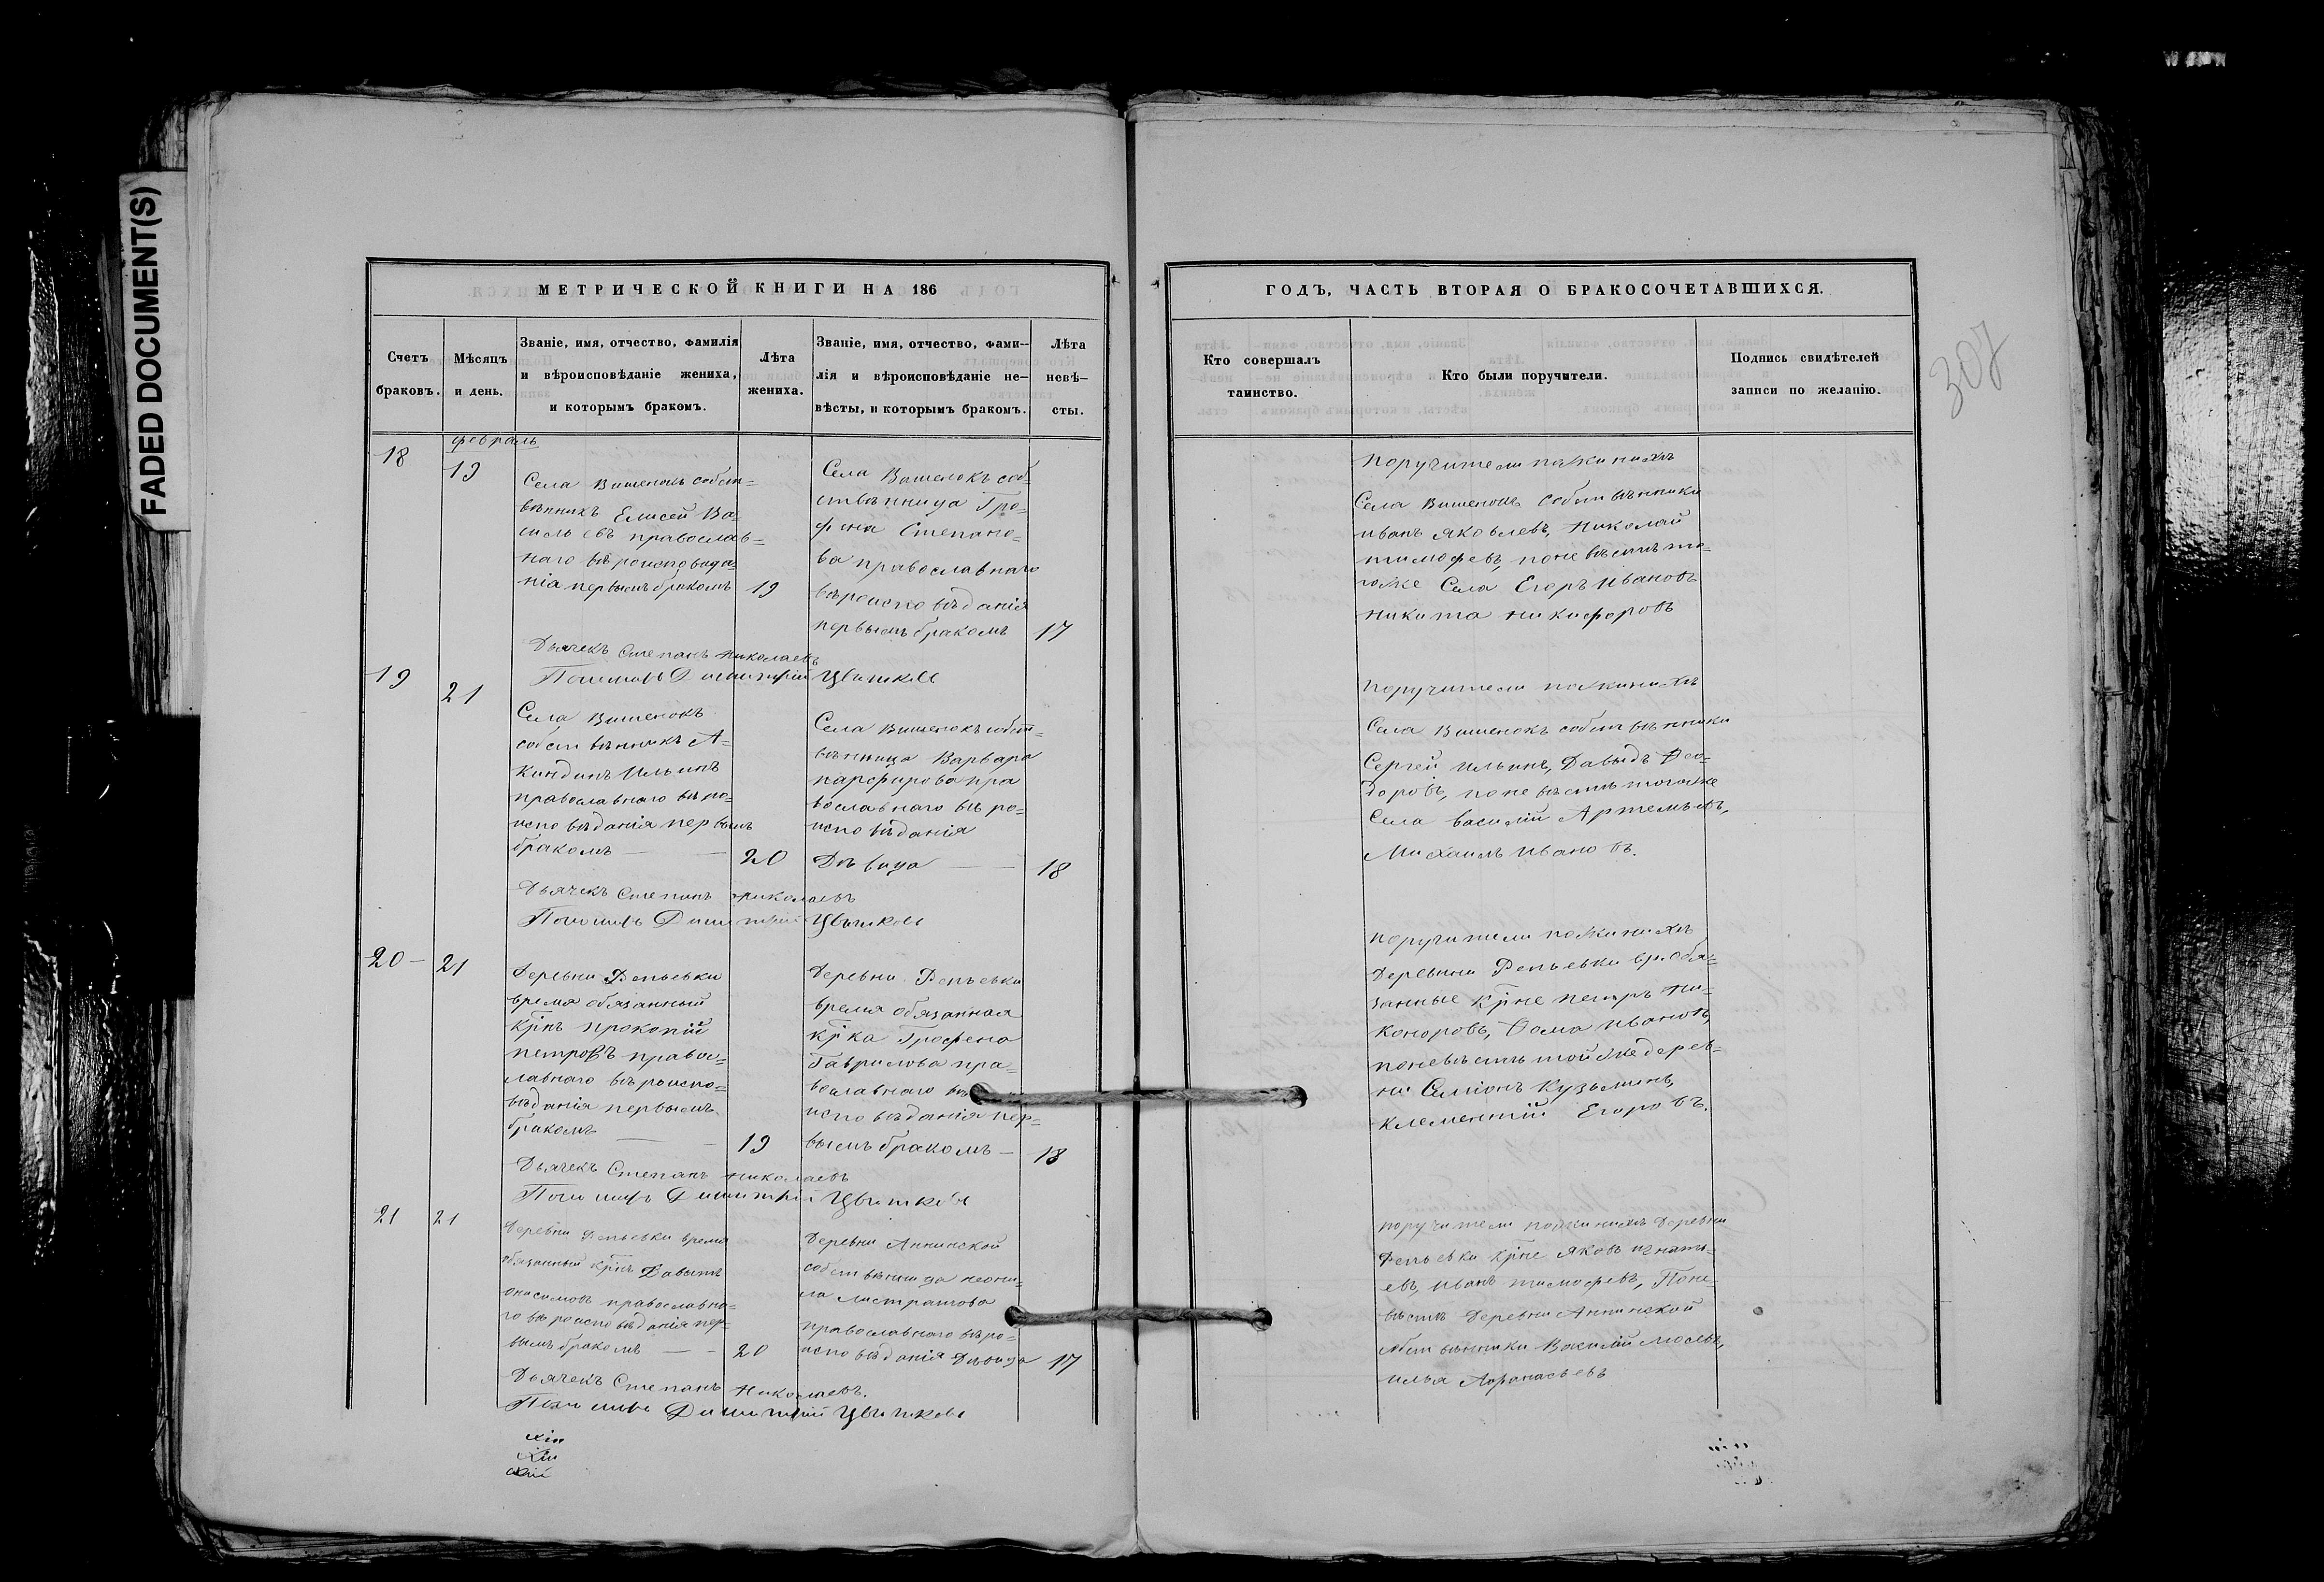 FADED DOCUMENT(S)
МЕТРИЧЕСКОЙ КНИГИ НА 186
Счетъ браковъ.
Мѣсяцъ и день.
Званіе, имя, отчество, фамилія
и вѣроисповѣданіе жениха,
и которымъ бракомъ.
Лѣта жениха.
Званіе, имя, отчество, фами-
лія и вѣроисповѣданіе не-
вѣсты, и которымъ бракомъ.
Лѣта невѣ-
сты.
февраль
18
19
Села Вишенокъ собст=
вѣнникъ Елисей Ва=
сильевъ православ=
наго вѣроисповѣда=
нія первымъ бракомъ 19
Села Вишенокъ соб=
ствѣнница Гра=
фена Степано=
ва православнаго
вѣроисповѣданія
первымъ бракомъ 17
Дьячекъ Степанъ Николаевъ
Пономарь Димитрій Цвѣтковъ
19
21
Села Вишенокъ
собствѣнникъ А=
киндинъ Ильинъ
православнаго вѣро=
исповѣданія первымъ
бракомъ — 20
Села Вишенокъ собст=
вѣнница Варвара
парфирова пра
вославнаго вѣро=
исповѣданія
Дѣвица — 18
Дьячекъ Степанъ николаевъ
Пономарь Димитрій Цвѣтковъ
20 —
21
Деревни Репьевки
время обязанный
Крнъ Прокопій
петровъ правос=
лавнаго вѣроиспо=
вѣданія первымъ
бракомъ — 19
Деревни Репьевки
время обязанная
Крка Графена
Гаврилова пра=
вославнаго вѣ
исповѣданія пер=
вымъ бракомъ — 18
Дьячекъ Степанъ Николаевъ
Пономарь Димитрій Цвѣтковъ
21
21
Деревни Репьевки время
обязанный Крнъ Давыдъ
онисимовъ православна=
го вѣроисповѣданія пер=
вымъ бракомъ — 20
Деревни Аннинской
собствѣнница неони=
ла Листратова
православнаго вѣро=
исповѣданія Дѣвица 17
Дьячекъ Степанъ Николаевъ.
Пономарь Димитрій Цвѣтковъ
ГОДЪ, ЧАСТЬ ВТОРАЯ О БРАКОСОЧЕТАВШИХСЯ.
Кто совершалъ
таинство.
Кто были поручители.
Подпись свидѣтелей
записи по желанію.
307
поручители пожинихѣ
Села Вишенокъ собствѣнники
иванъ яковлевъ, Николай
тимофевъ, поневѣстѣ то=
гоже Села Егоръ Ивановъ
никита никифоровъ
поручители пожинихѣ
Села Вишенокъ собствѣнники
Сергей ильинъ, Давыдъ Фео=
доровъ, поневѣстѣ тогоже
Села василій Артемьевъ,
Михаилъ Ивановъ.
поручители пожинихѣ
Деревни Репьевки вр. обя=
занные Крне петръ Ни=
каноровъ, Фома Ивановъ,
поневѣстѣ тойже дерев=
ни Симіонъ Кузьминъ,
Климентій Егоровъ.
поручители пожинихѣ Деревни
Репьевки Крне яковъ игнать=
евъ, иванъ тимофевъ, Поне=
вѣстѣ Деревни Аннинской
собствѣнники Василій
илья Афанасьевъ